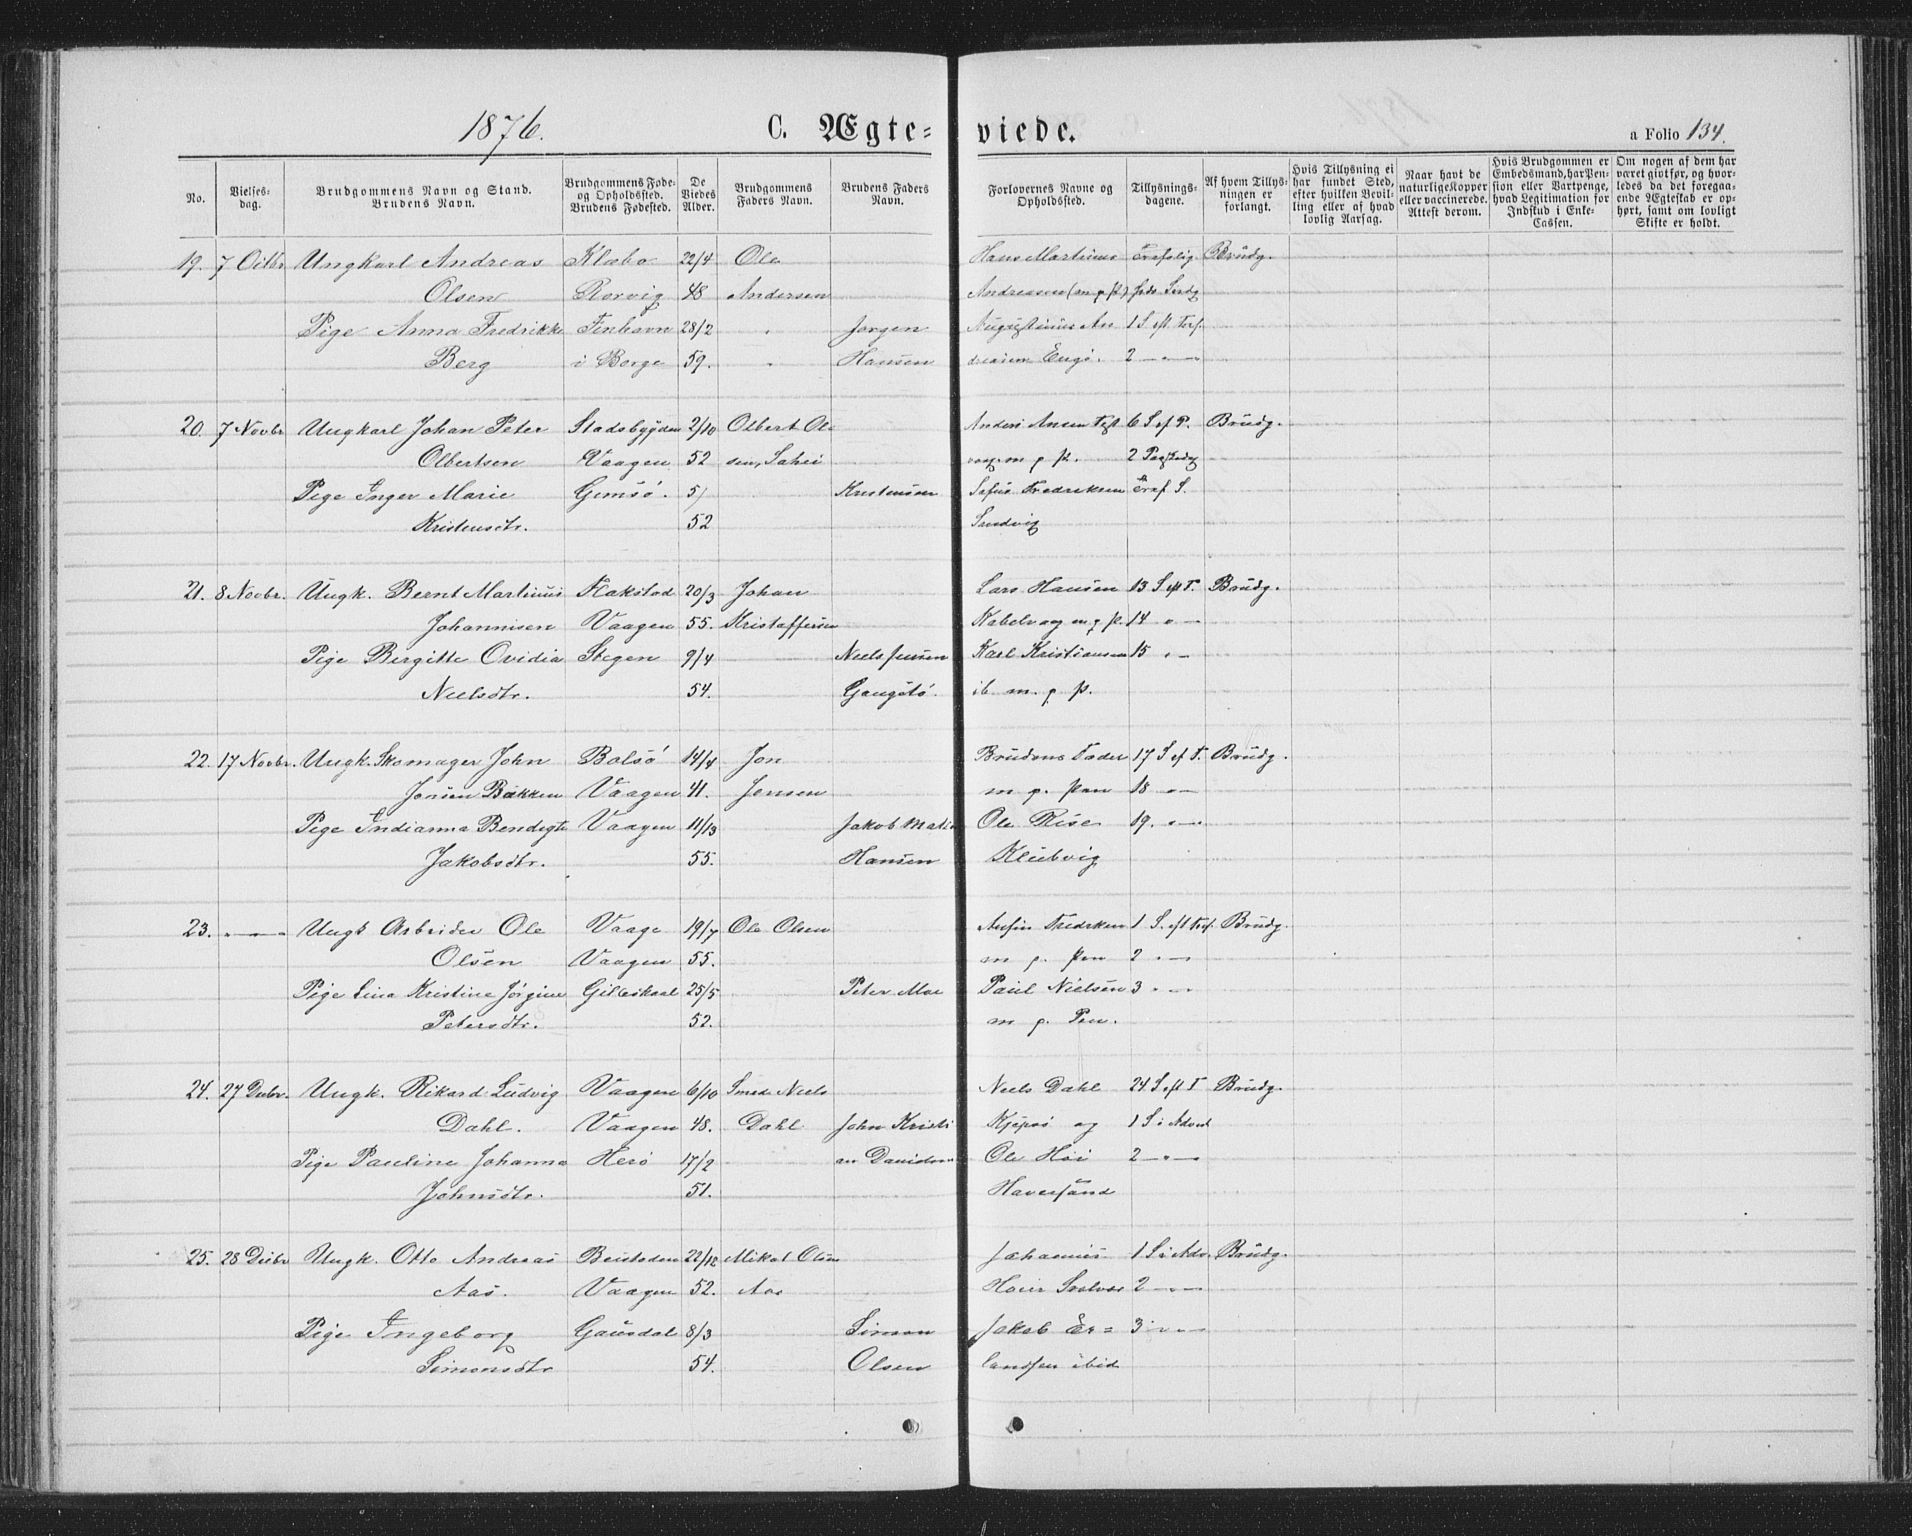 1876. C. Ægte= viede. a Folio 134.
No.
Vielses-
dag.
Brudgommens Navn og Stand.
Brudens Navn.
Brudgommens Føde-
og Opholdssted.
Brudens Fødested.
De
Viedes
Alder.
Brudgommens
Faders Navn.
Brudens Faders
Navn.
Forlovernes Navne og
Opholdssted.
Tillysnings-
dagene.
Af hvem Tillys-
ningen er
forlangt.
Hvis Tillysning ei
har fundet Sted,
efter hvilken Bevil-
ling eller af hvad
lovlig Aarsag.
Naar havt de
naturlige Kopper
eller vaccinerede.
Attest derom.
Hvis Brudgommen er
Embedsmand, har Pen-
sion eller Vartpenge,
hvad Legitimation for
Indskud i Enke-
Cassen.
Om nogen af dem har
været givtfør, og hvor-
ledes da det foregaa-
ende Ægteskab er op-
hørt, samt om lovligt
Skifte er holdt.
19. 7 Octbr Ungkarl Andreas Klæbo 22/4 Ole Hans Martinus Brudg.
Olsen Rorvig 48 Andersen Andreasen (m p P)
Pige Anna Fredrikke 28/2 Jørgen Augustinus An 1 S. eft
Berg i Borge 59. Hansen dreasen Engø. 2 - " -
20. 7 Novbr Ungkarl Johan Peter Stadsbygden 2/10 Olbert Ol 6 S ef P. Brudg.
Olbertsen Vaagen 52 sen, m p p. 2
Pige Inger Marie Gimsø. 5/ Kristensen Fredriksen
Kristensdtr. 52 Sandvig
21. 8 Novbr. Ungk. Bernt Martinus Flakstad 20/3 Johan Lars Hansen 13 S. eft T. Brudg.
Johannisen Vaagen 55. Kristaffersen Kabelvaag m p p. 14 " -
Pige Bergitte Ovidia Stegen 9/4 Niels Jensen Karl Kristiansen 15 " -
Nielsdtr. 54. ib m. p p.
22. 17 Novbr. Ungk. Skomager John Bolsø 14/4 Jon Brudens Fader 17 S. ef T. Brudg.
Jonsen Bakken Vaagen 41. Jensen m p. pen 18 " -
Pige Indianna Bendigte Vaagen 11/13 Jakob Ole Rise 19. " -
Jakobsdtr. 55. Hansen
23. - " - Arbeider Ole Vaage 19/7 Ole Olsen 1 S. eft Brudg.
Olsen Vaagen 55. m p. pen 2 " -
Pige Lina Kristine Jørgine Gilleskaal 25/5 Peter Moe Paul Nielsen 3 " -
Petersdtr. 52. m p. Pen.
24. 27 Decbr. Ungk. Rikard Ludvig Vaagen 6/10 Smed Niels Niels Dahl 24 S. eft T Brudg.
Dahl. Vaagen 48. Dahl John Kristi og 1 S i Advent
Pige Pauline Johanna Herø 17/2 an Davidsen Ole 2 - " -
Johnsdtr. 51.
25. 28 Decbr Ungk. Otto Andreas Beistaden 22/12 Mikal Olsen Johannes 1 S i Adv. Brudg.
Aas. Vaagen 52. Aas 2 - " -
Pige Ingeborg Gausdal 8/3 Simon Jakob Er= 3 - " -
Simonsdtr 54. Olsen landsen ibid